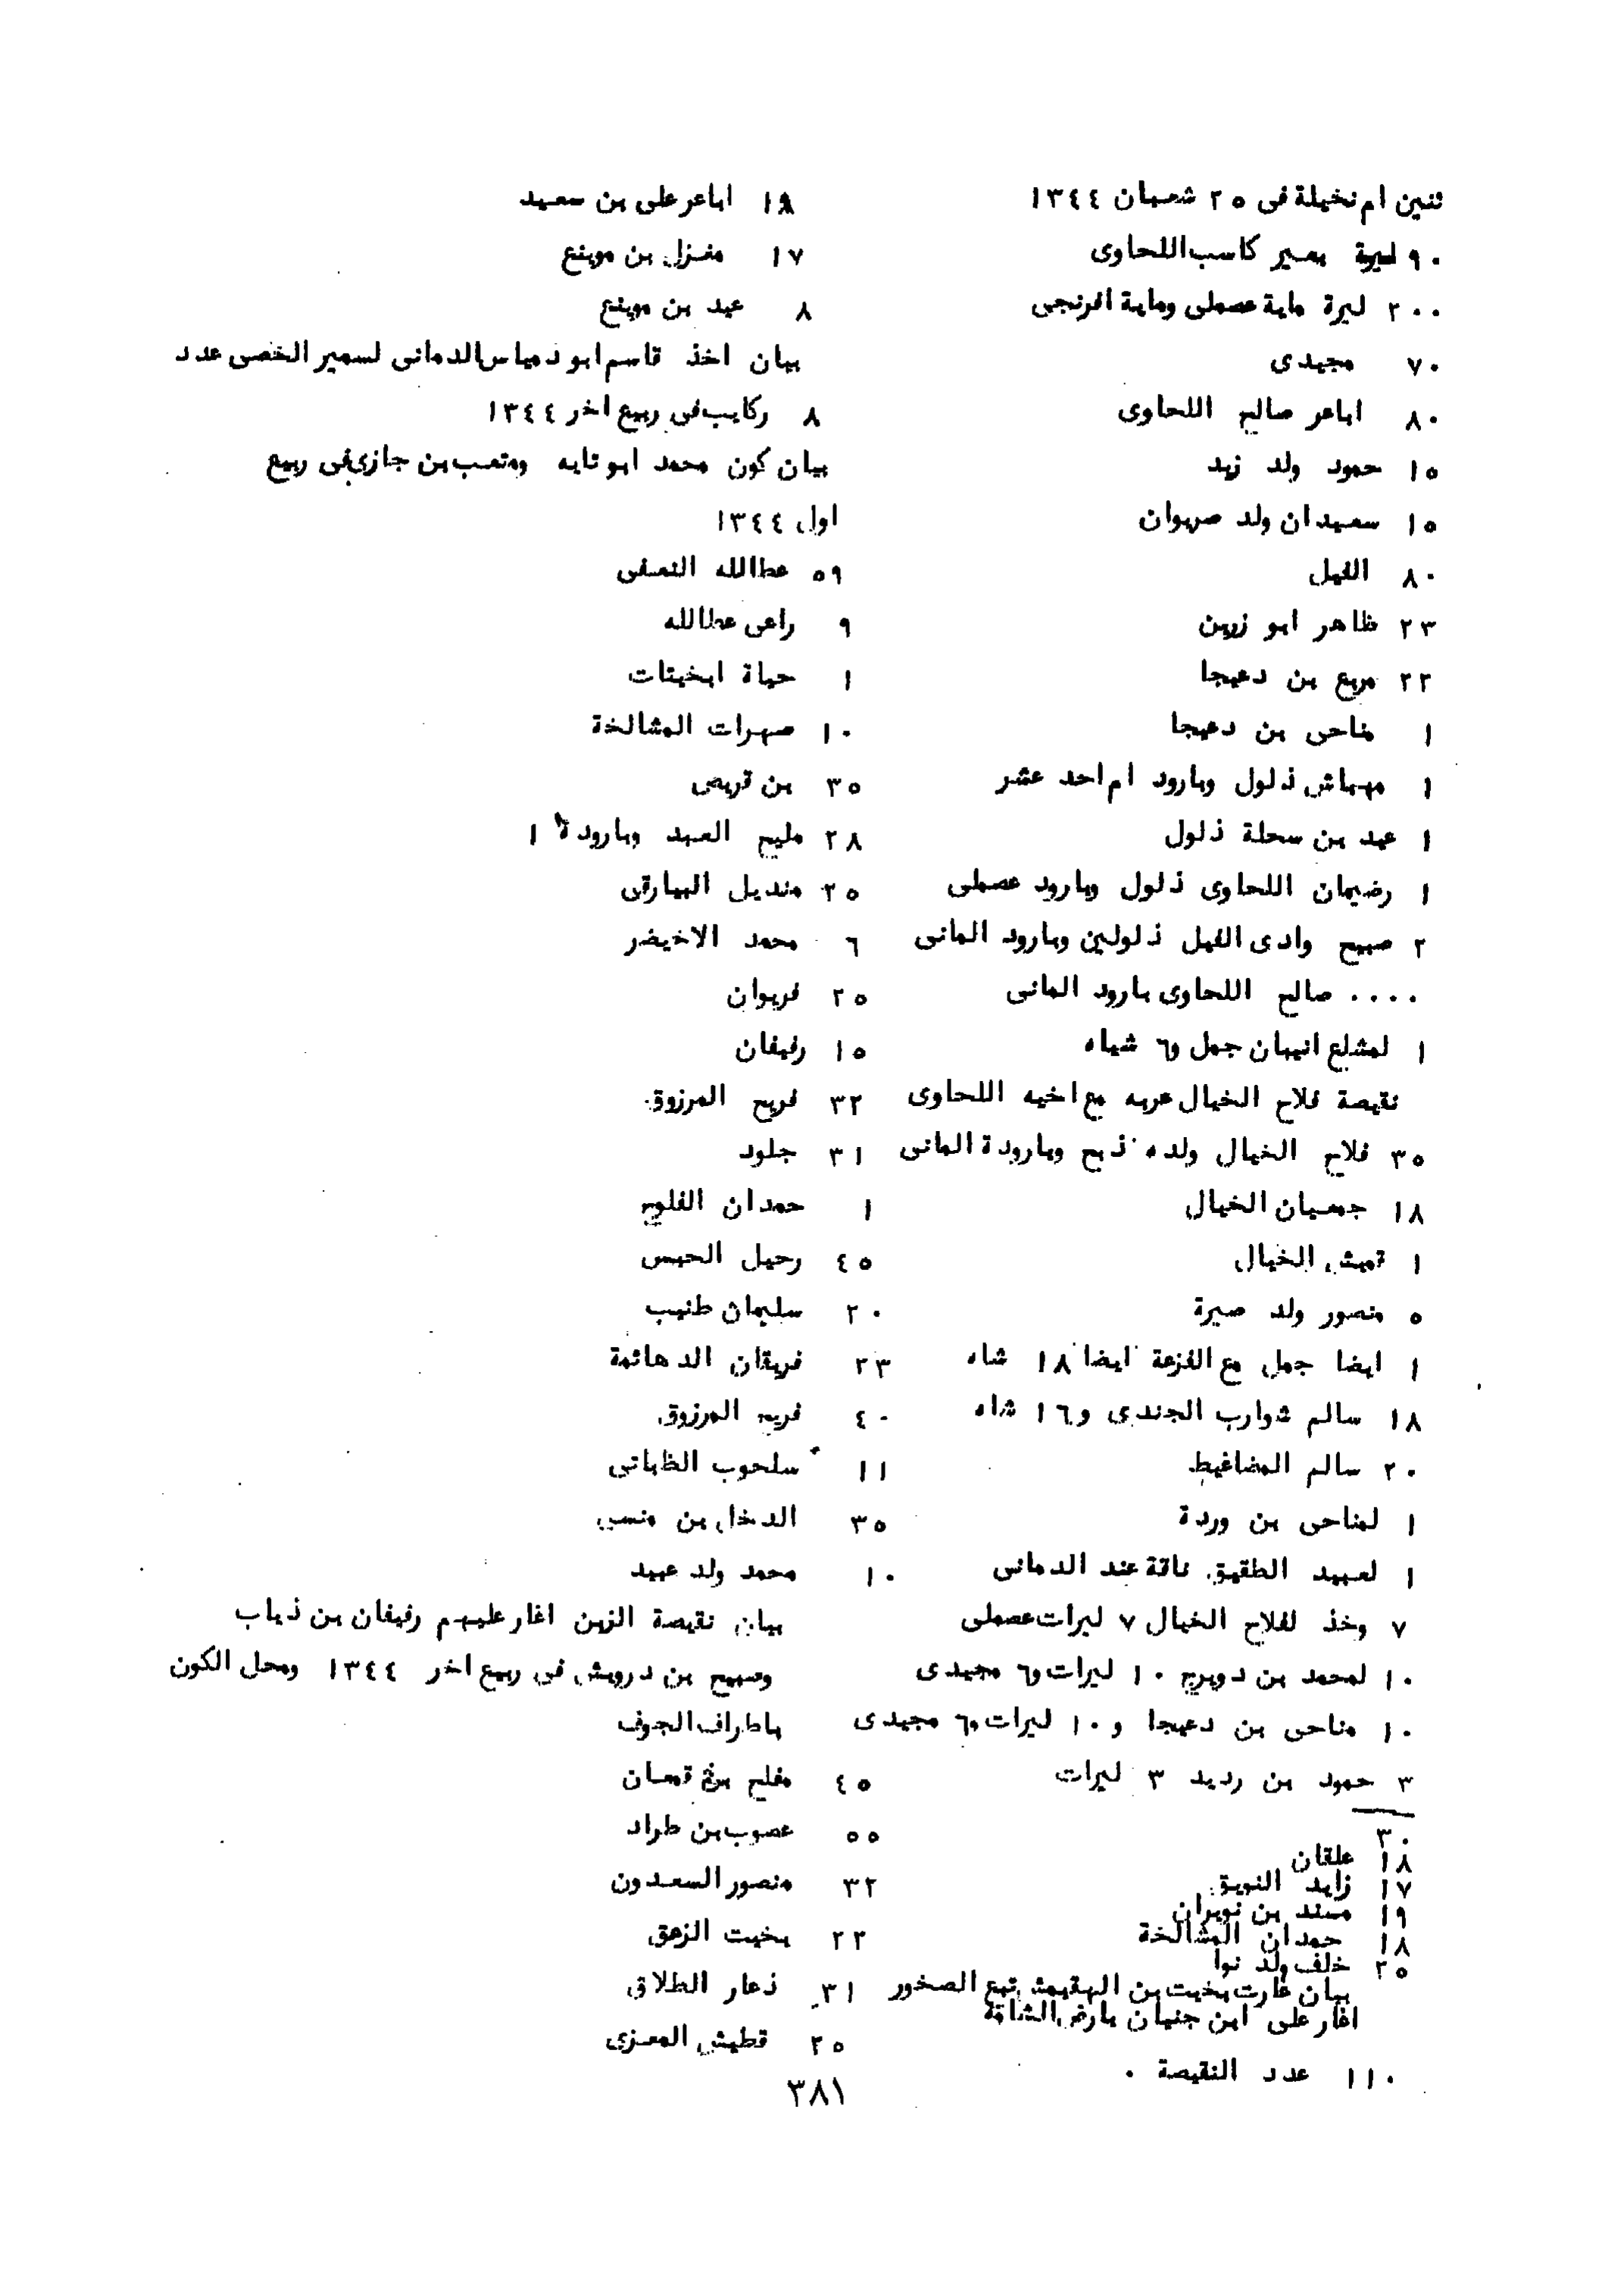 ثنين ام نخيلة فى ٢٥ شعبان ١٣٤٤
٩٠ ليرة بعير كاسب اللحاوى
٢٠٠ ليرة ماية عصملى وماية افرنجى
٧٠ مجيدى
٨٠ اباعر صالح اللحاوى
١٥ حمود ولد زيد
١٥ سعيدان ولد صريوان
٨٠ الفيل
٢٣ ظاهر ابو زرين
٢٢ مريع بن دعيجا
١ مناحى بن دعيجا
١ مهباش ذلول وبارود ام احد عشر
١ عيد بن سحلة ذلول
١ رضيمان اللحاوى ذلول وبارود عصملى
٢ صبيح وادى الفيل ذلولين وبارود المانى
.... صالح اللحاوى بارود المانى
١ لمشلع انيبان جمل و٦ شياه
نقيصة فلاح الخيال عربه مع اخيه اللحاوى
٣٥ فلاح الخيال ولده ذبح وبارودة المانى
١٨ جمعيان الخيال
١ الخيال
٥ منصور ولد صيرة
١ ايضا جمل مع الفزعة ايضا ١٨ شاه
١٨ سالم شوارب الجندى و١٦ شاه
٢٠ سالم المضاغيط
١ لمناحى بن وردة
١ لعبيد الطقيق ناقة عند الدمانى
٧ وخذ لفلاح الخيال ٧ ليرات عصملى
١٠ لمحمد بن دويرج ١٠ ليرات و٦ مجيدى
١٠ مناحى بن دعيجا و ١٠ ليرات و٦ مجيدى
٣ حمود بن رديد ٣ ليرات
٣٠
١٨ علقان
١٧ زايد النويق
١٩ مسند بن نويران
١٨ حمدان المشالخة
٢٥ خلف ولد نوا
بيان غارت بخيت بن تبع الصخور
اغار على ابن جنيان بارض الشامة
١١٠ عدد النقيصة .
١٨ اباعر على بن سعيد
١٧ منزل بن موينع
٨ عيد بن موينع
بيان اخذ قاسم ابو دمياس الدمانى لسمير الخصى عدد
٨ ركايب فى ربيع اخر ١٣٤٤
بيان كون محمد ابو تايه ومتعب بن جازى فى ربيع
اول ١٣٤٤
٥٩ عطالله النصفى
٩ راعى عطالله
١ حياة ابخيتات
١٠ صهرات المشالخة
٣٥ بن قريص
٢٨ مليح العبد وبارودة ١
٢٥ منديل البيارقى
٦ محمد الاخيضر
٢٥ فريوان
١٥ رفيفان
٣٢ فريح المرزوق
٣١ جلود
١ حمدان الفلوح
٤٥ رحيل الحبس
٢٠ سليمان طنيب
٢٣ فريقان الدهائمة
٤٠ فريح المرزوق
١١ سلحوب الظباتى
٣٥ الدخل بن منسى
١٠ محمد ولد عبيد
بيان نقيصة الزبن اغار عليهم رفيفان بن ذياب
وصبيح بن درويش فى ربيع اخر ١٣٤٤ ومحل الكون
باطراف الجوف
٤٥ مفلح بن قمعان
٥٥ عصوب بن طراد
٣٢ منصور السعدون
٢٢ بخيت الزعق
٣١ ذعار الطلاق
٢٥ قطيش المعزى
٣٨١